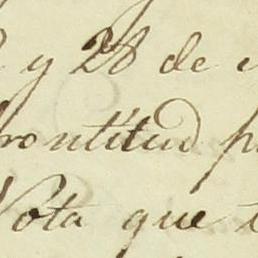 y 28 de
prontitud
Nota que